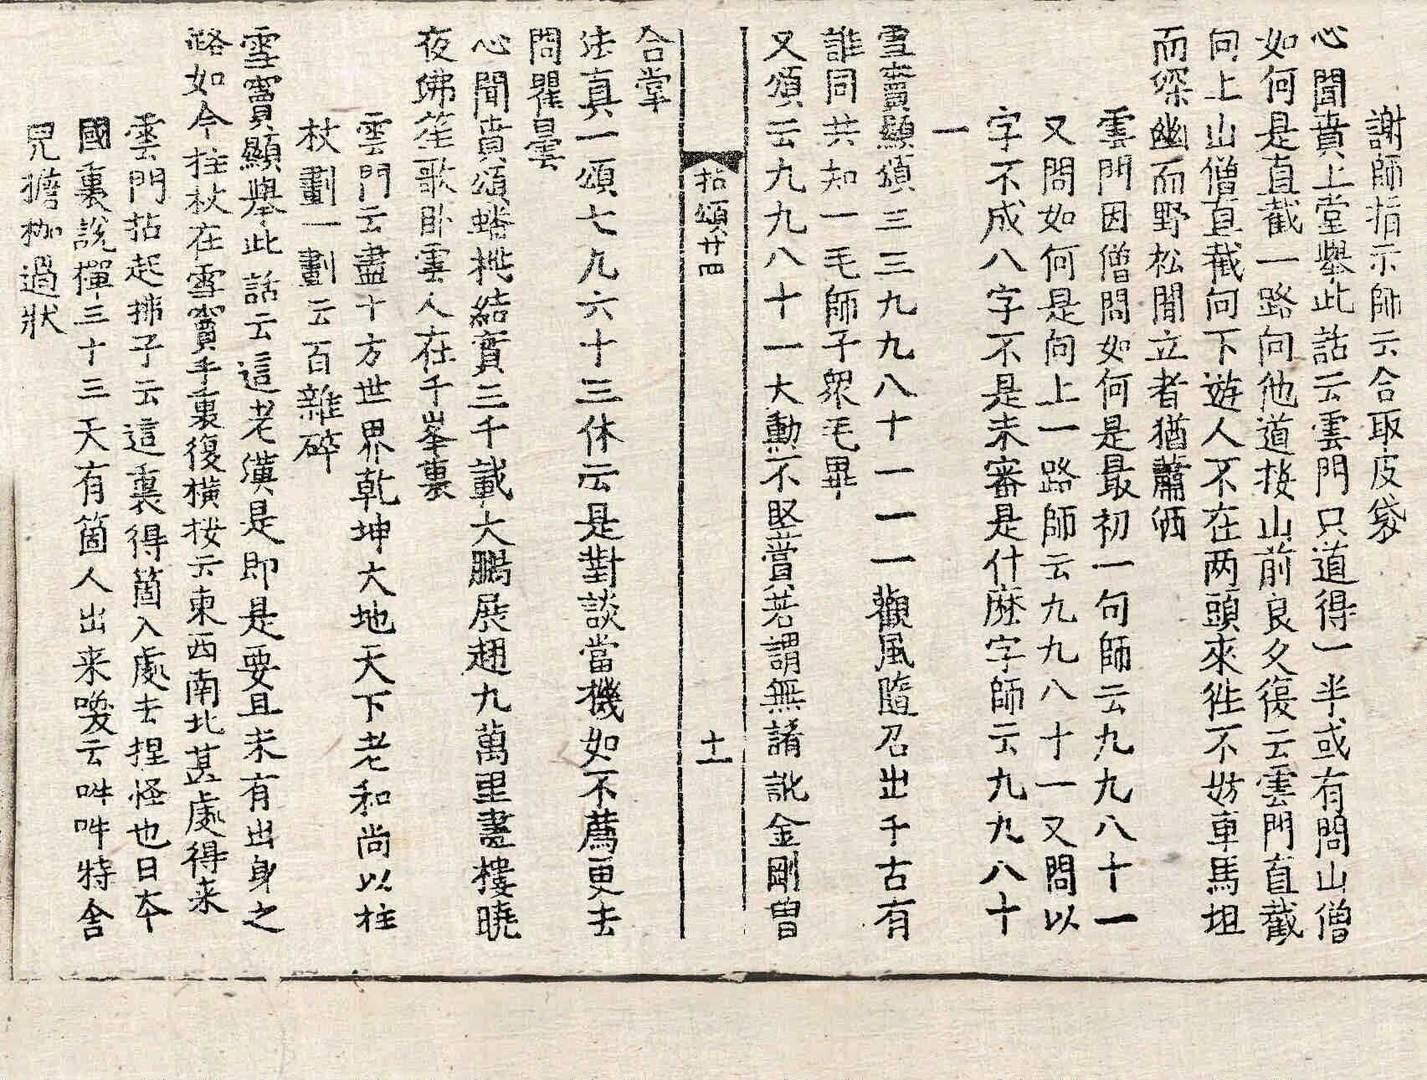 謝師指示師云合取皮袋
心聞賁上堂舉此話云雲門只道得一半或有問山僧
如何是直截一路向他道按山前良久復云雲門直截
向上山僧直截向下遊人不在两頭來徃不妨車馬坦
而深幽而野松閒立者猶蕭洒
雲門因僧問如何是最初一句師云九九八十一
又問如何是向上一路師云九九八十一又問以
字不成八字不是未審是什麽字師云九九八十
一
雪竇顯頌三三九九八十一一一觀風隨召出千古有
誰同共知一毛師子衆毛畢
又頌云九九八十一大勳不竪賞若謂無諸訛金剛曽
拈頌廿四
十一
合掌
法真一頌七九六十三休云是對談當機如不薦更去
問瞿曇
心聞賁頌蟠桃結實三千載大鵬展翅九萬里畫樓曉
夜沸笙歌卧雲人在千峯裏
雲門云盡十方世界乾坤大地天下老和尚以柱
杖劃一劃云百雜碎
雪竇顯舉此話云這老漢是即是要且未有出身之
路如今拄杖在雪竇手裏復橫按云東西南北甚處得来
雲門拈起拂子云這裏得箇入處去捏怪也日本
國裏說禪三十三天有箇人出来喚云吽吽特舍
兒擔枷過狀